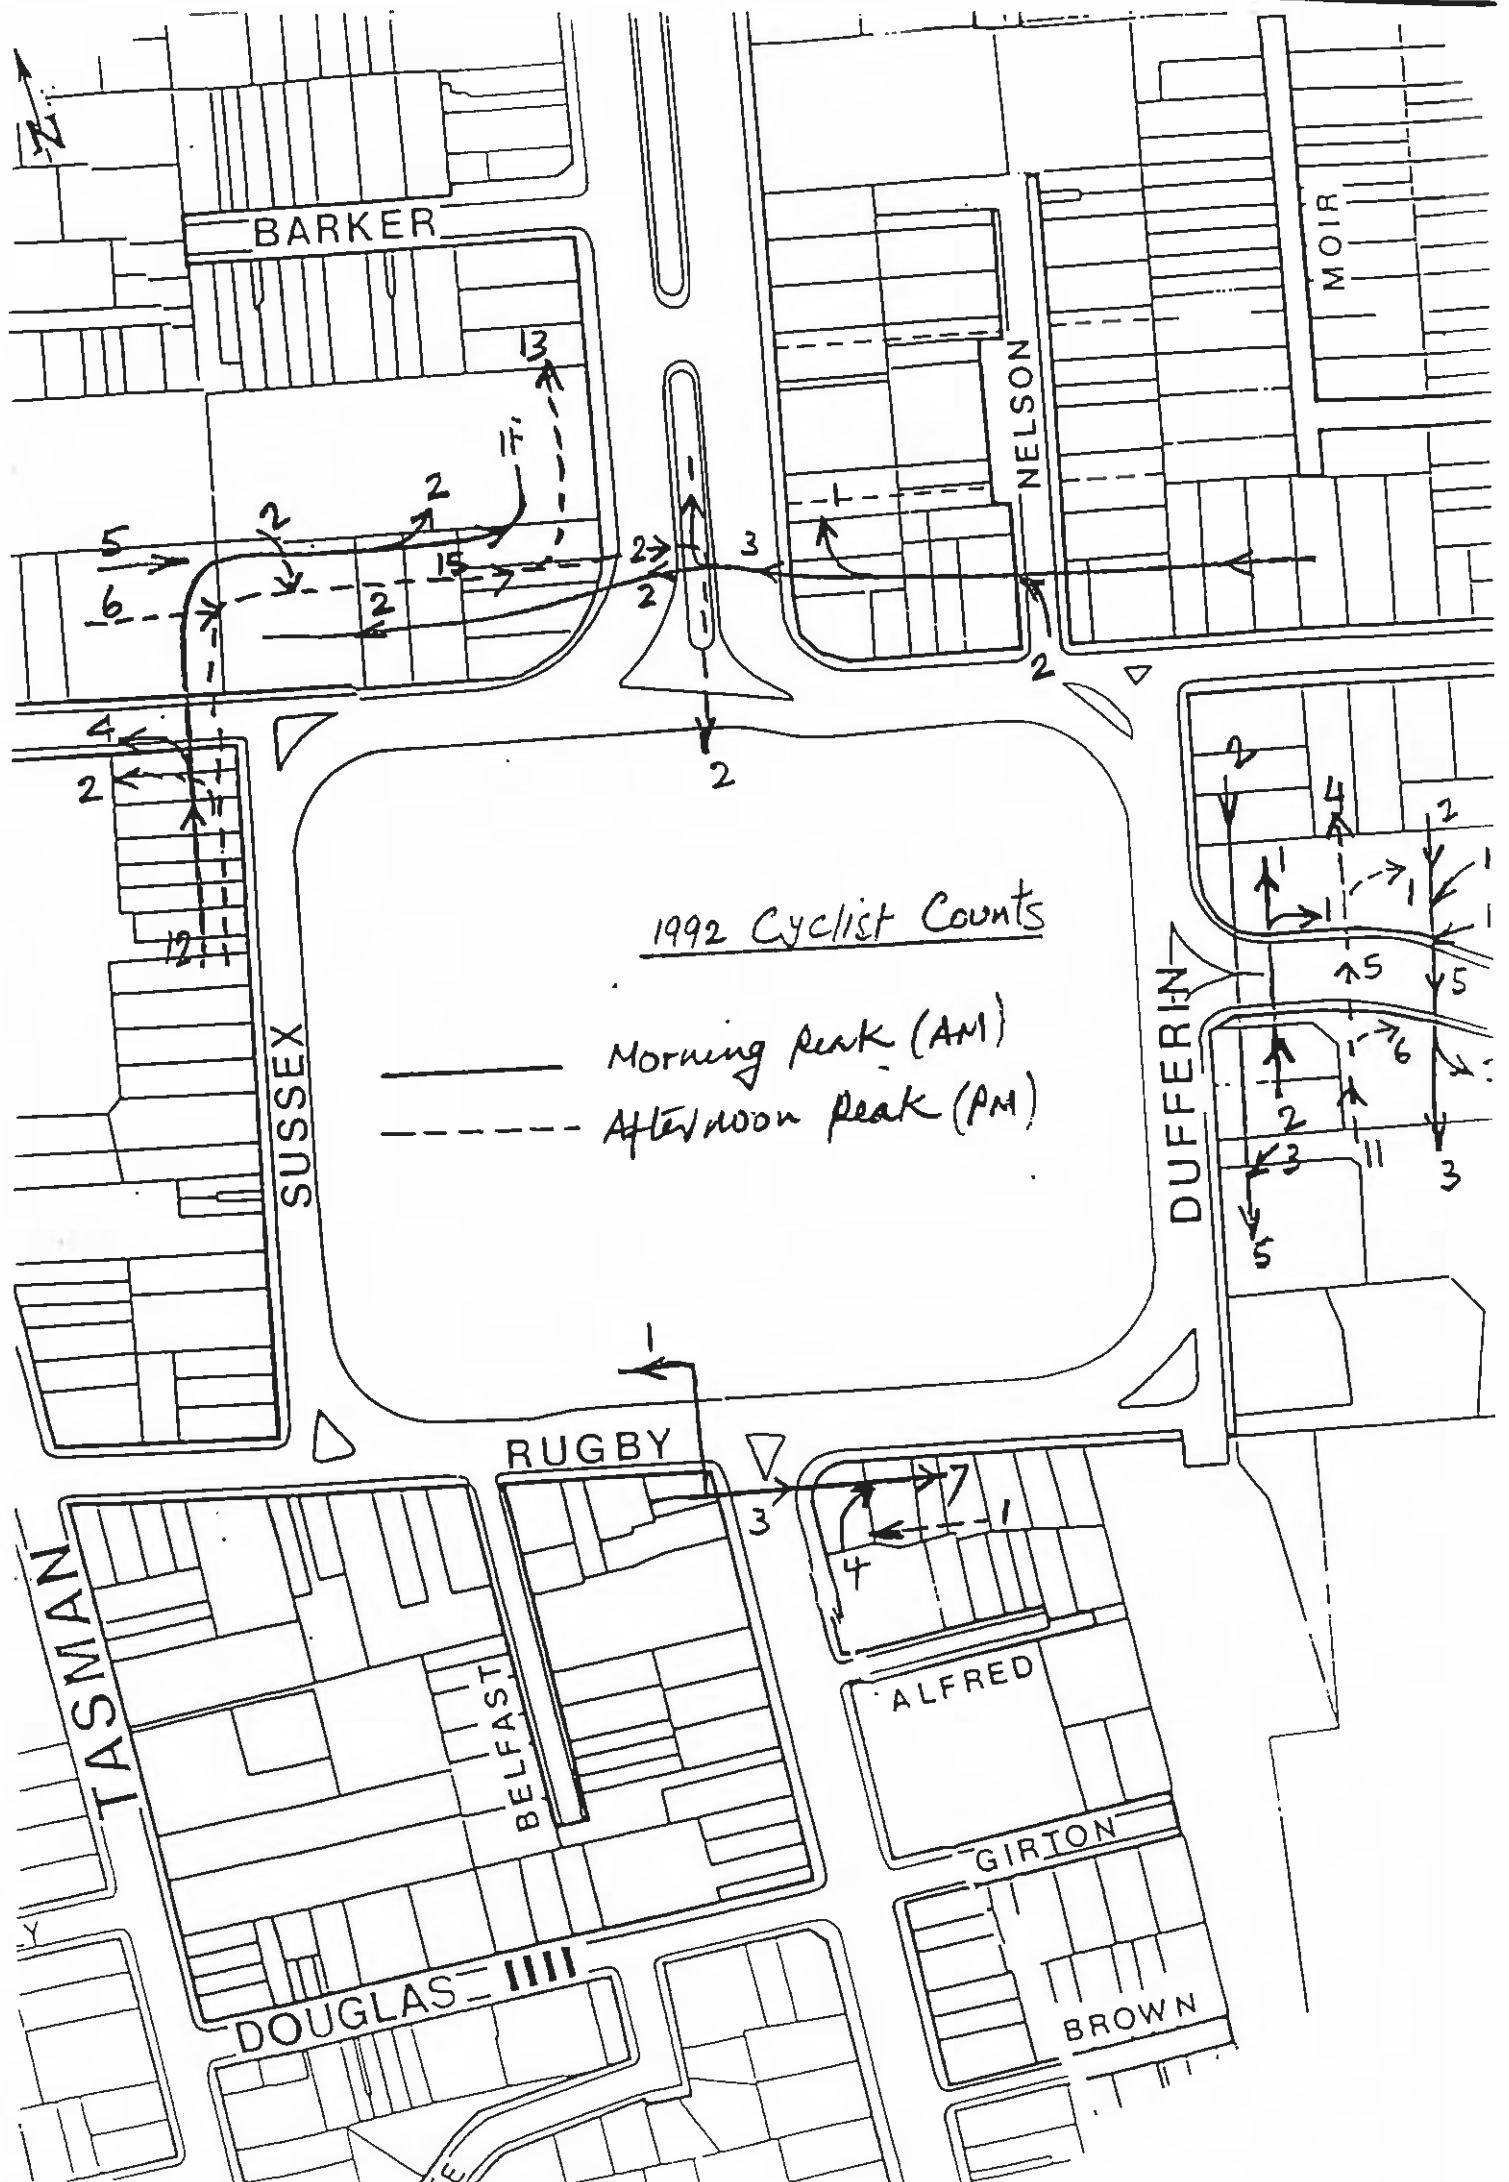 N
BARKER
MOIR
NELSON
13
17
2
2
5
15
7
6
2
2
2
1
3
1
2
4
2
2
12
11
2
4
2
1
1
1
1
1
5
5
6
2
3
11
3
5
1992 Cyclist Counts
Morning Peak (AM)
Afternoon Peak (PM)
SUSSEX
DUFFERIN
1
RUGBY
3
7
1
4
TASMAN
BELFAST
ALFRED
GIRTON
DOUGLAS
BROWN
Y
E